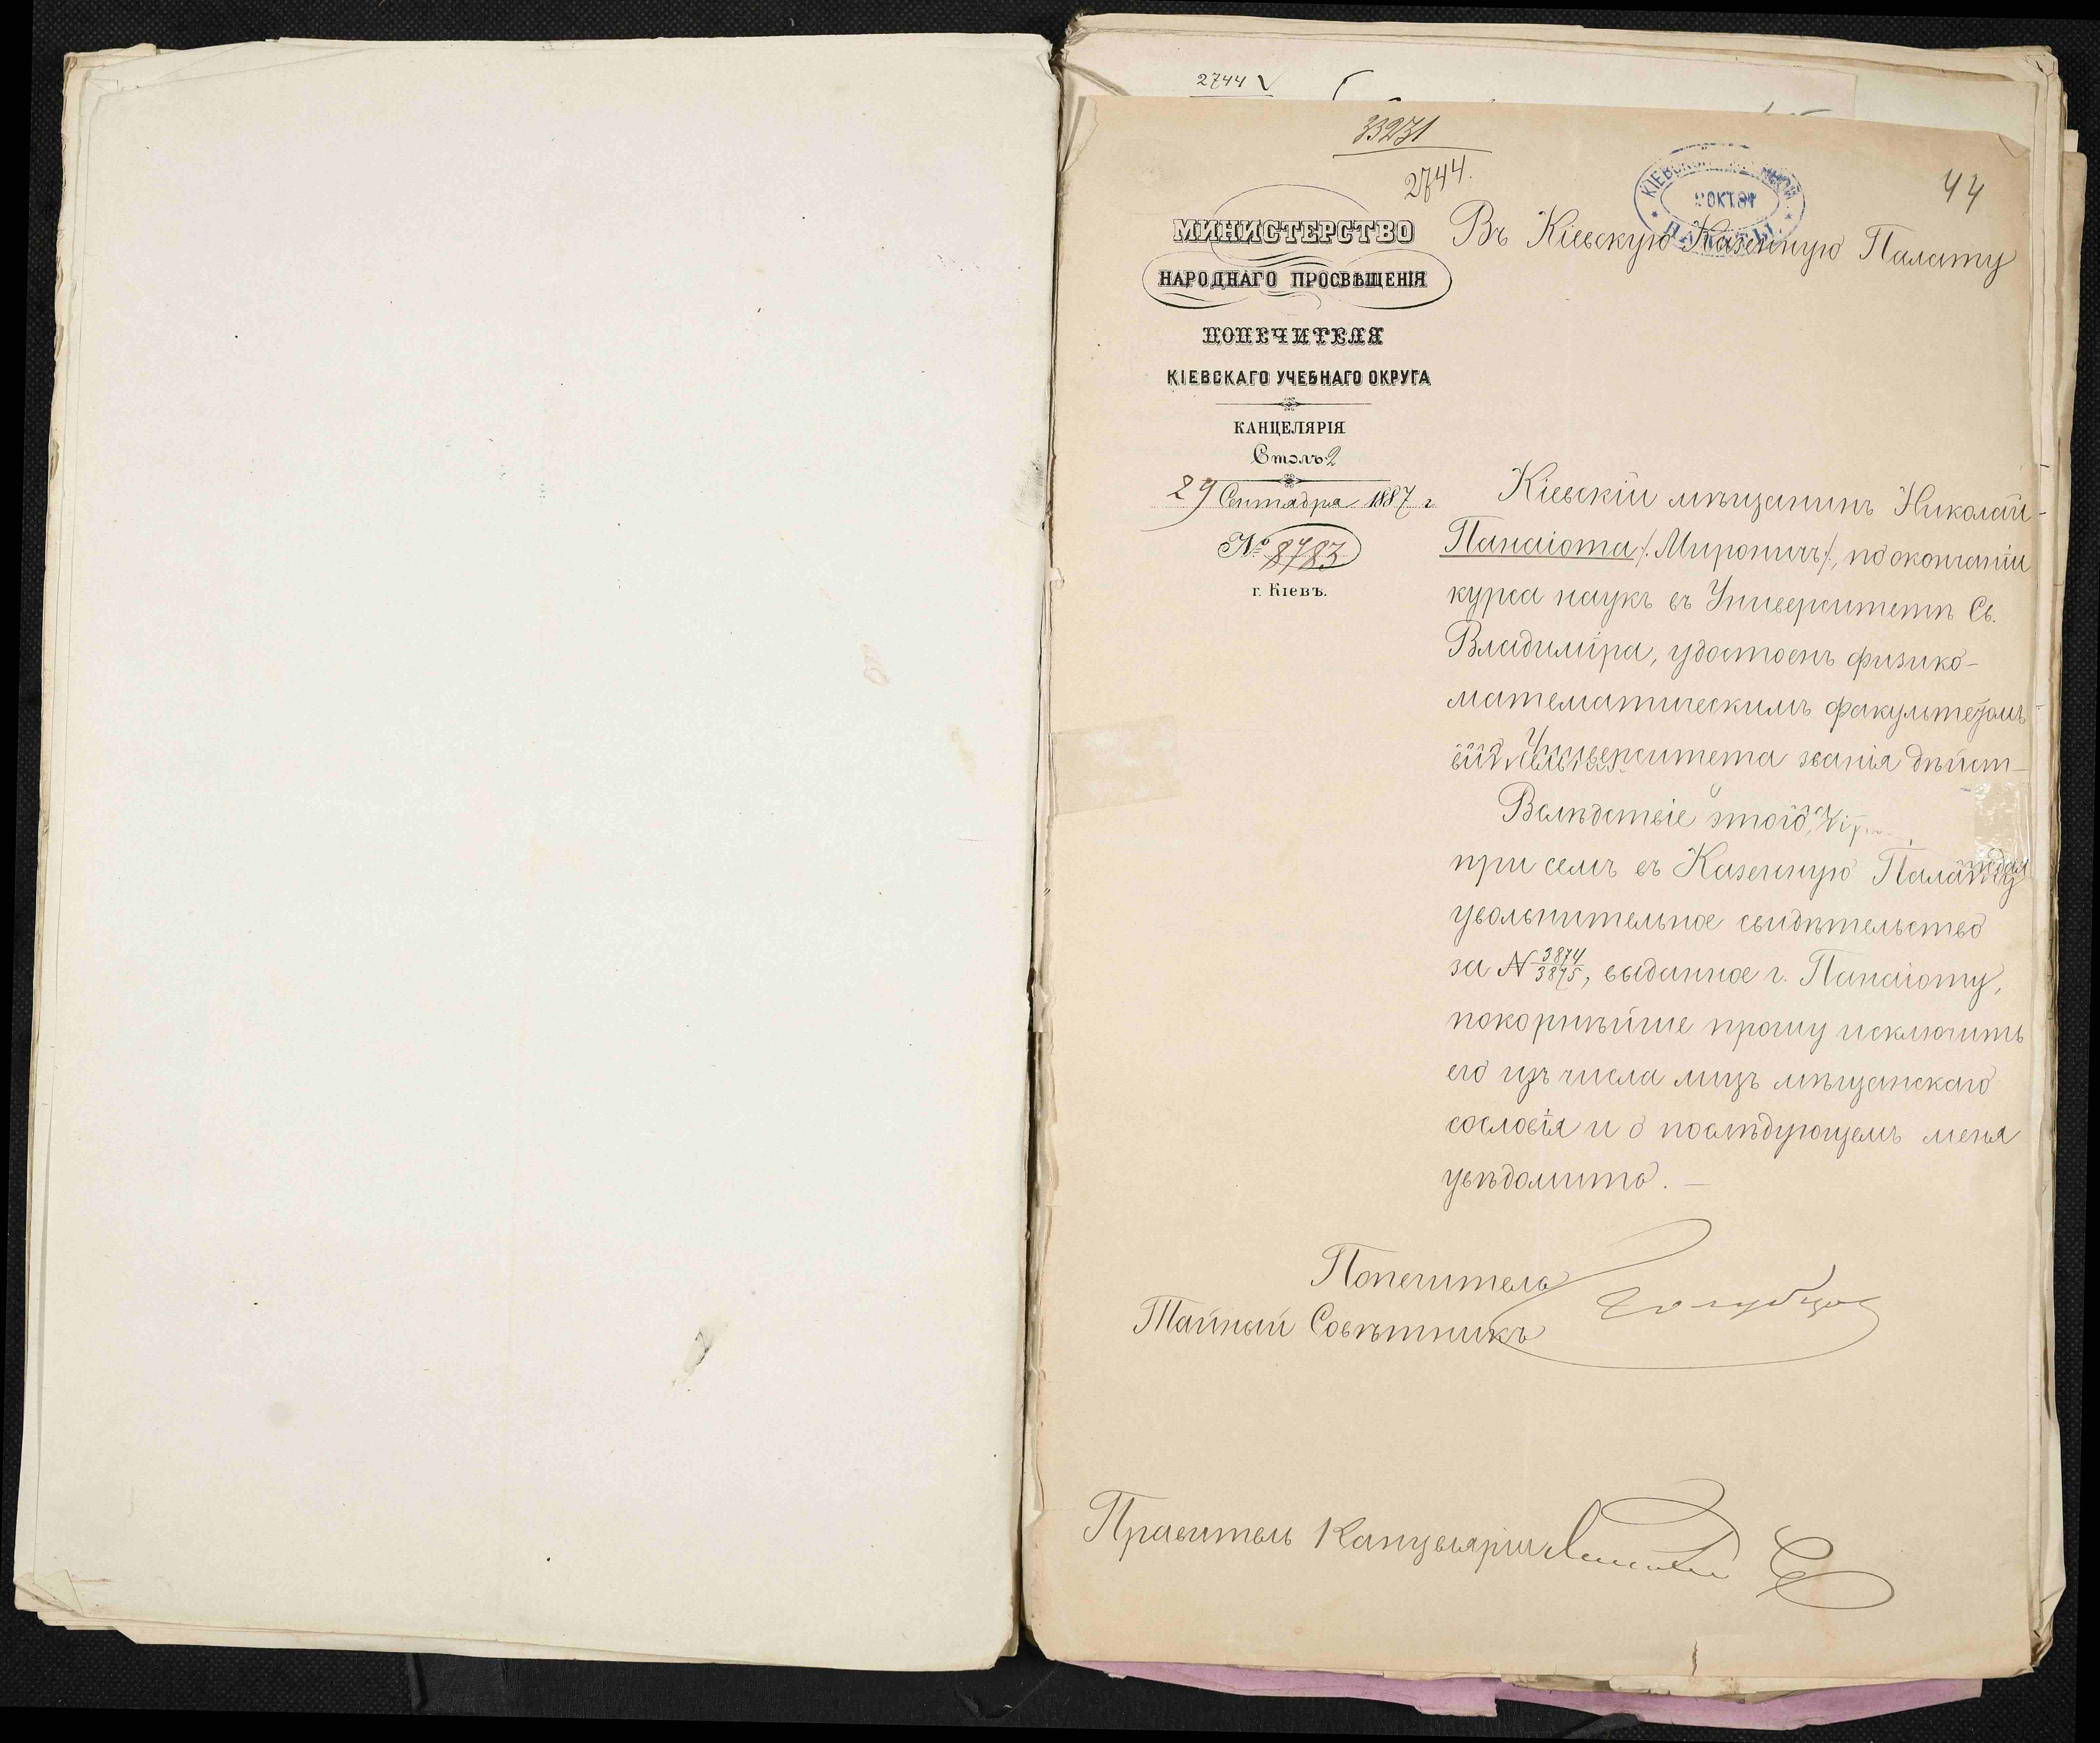 2744
33231
2744.
44
КІЕВСКОЙ КАЗЕННОЙ
2 ОКТ 87
ПАЛАТЫ
МИНИСТЕРСТВО
НАРОДНАГО ПРОСВѢЩЕНІЯ
ПОПЕЧИТЕЛЯ
КІЕВСКАГО УЧЕБНАГО ОКРУГА
КАНЦЕЛЯРІЯ
Столъ 2
29 Сентября 1887 г
№ 8783
г. Кіевъ.
Въ Кіевскую Казенную Палату
Кіевскій мѣщанинъ Николай
Панаіота /. Мироничъ/., по окончаніи
курса наукъ въ Университетѣ Св.
Владиміра, удостоенъ физико-
математическимъ факультетомъ
Университета званія дѣйст-
Вслѣдствіе этого,
при семъ въ Казенную Палату
увольнительное свидѣтельство
за N 3874/3875, выданное г. Панаіоту,
покорнѣйше прошу исключить
его изъ числа лицъ мѣщанскаго
сословія и о послѣдующемъ меня
увѣдомить. —
Попечитель
Тайный Совѣтникъ Голубцов
Правитель Канцеляріи